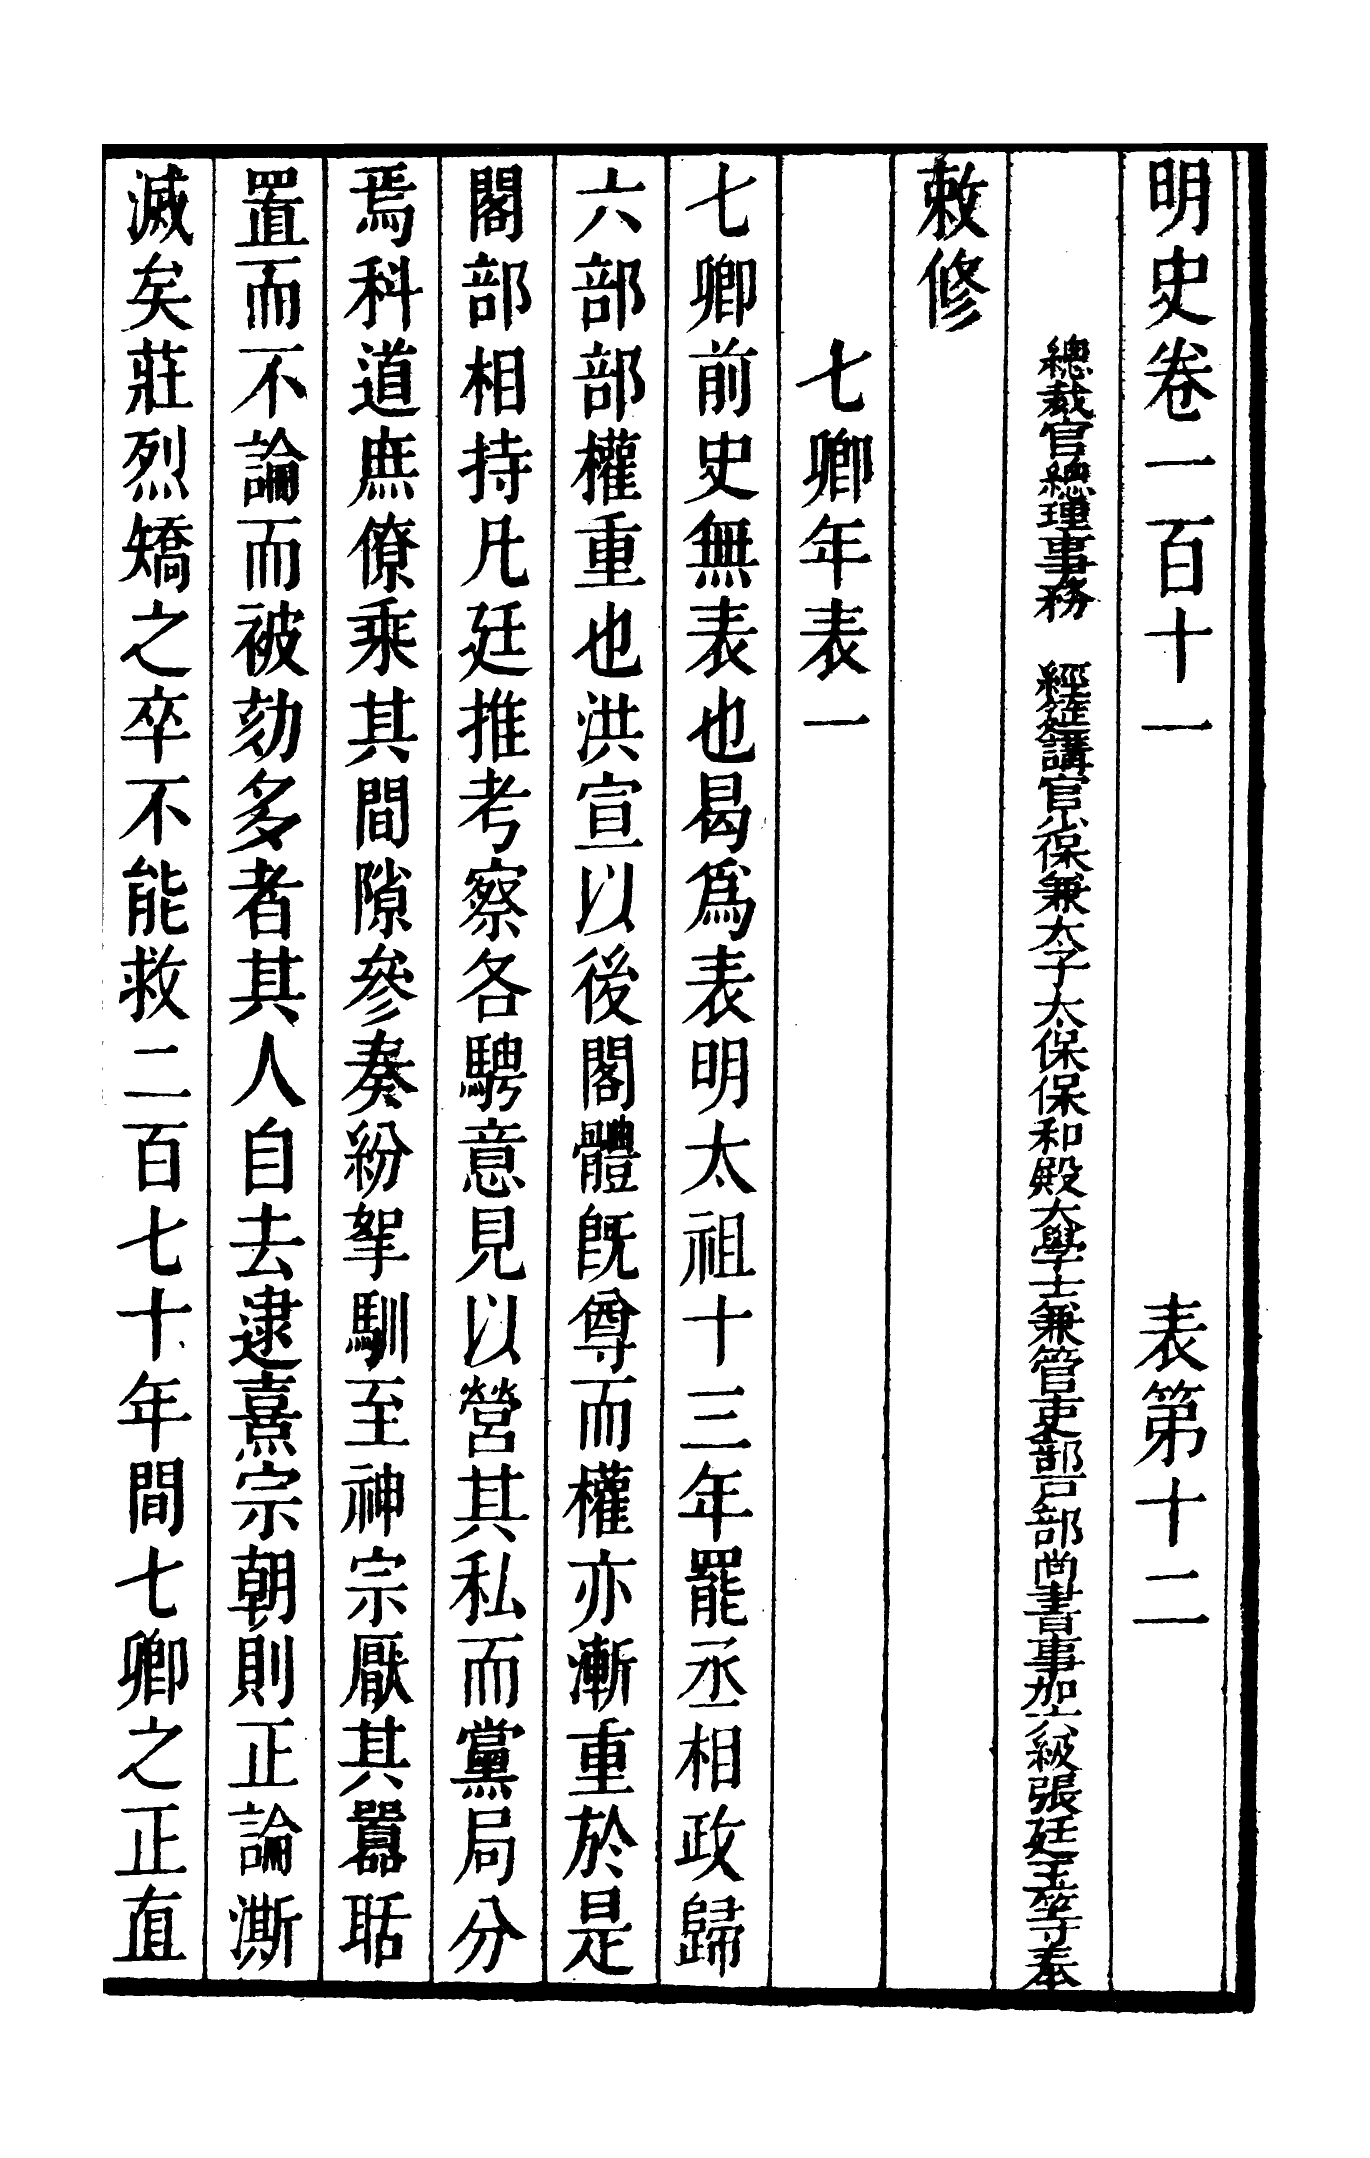 明史卷一百十一　表第十二
總裁官總理事務　經筵講官少保兼太子太保保和殿大學士兼管吏部戶部尚書事加六級張廷玉等奉
敕修
七卿年表一
七卿前史無表也曷爲表明太祖十三年罷丞相政歸
六部部權重也洪宣以後閣體旣尊而權亦漸重於是
閣部相持凡廷推考察各騁意見以營其私而黨局分
焉科道庶僚乘其間隙參奏紛挐馴至神宗厭其囂聒
置而不論而被劾多者其人自去逮熹宗朝則正論澌
滅矣莊烈矯之卒不能救二百七十年間七卿之正直